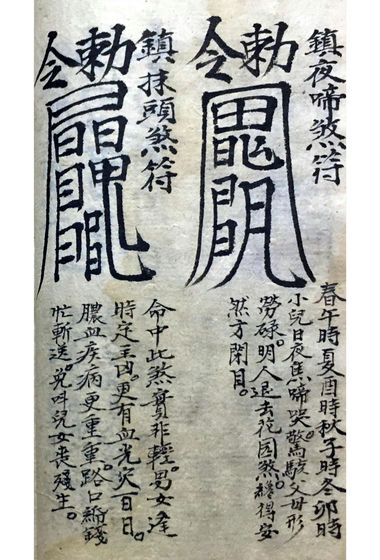 鎮夜啼煞符
敕令
春午時夏酉時秋子時冬卯時
小兒日夜焦啼哭驚駭父母形
勞碌。明人退去花園煞纔得安
然才閉目。
鎮抹頭煞符
敕令
命中此煞實非輕。男女逢
時定主凶。更有血光災百日。
膿血疾病更重重。路口
忙斬送。免叫兒女喪殘生。